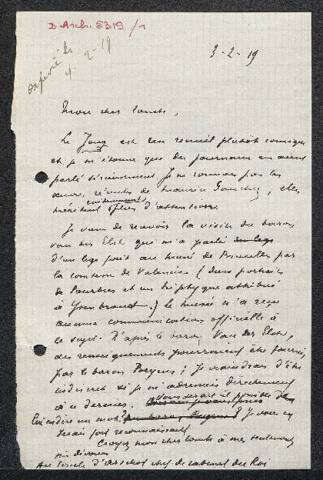 D Arch. 5319/1
expédié le 4-2-19
3-2-19
Mon cher comte,
Le Joug est un recueil plutôt comique
et je m'étonne que des journaux en aient
parlé sérieusement. Je ne connais pas les
œuvres de Maurice Gauchez, elles
méritent plus d'attention.
Je viens de recevoir la visite du baron
van der Elst qui m'a parlé
d'un legs fait au musée de Bruxelles par
la comtesse de Valencia (deux portraits
de Pourbus et un triptyque attribué
à Ysenbrandt.) Le musée n'a reçu
aucune communication officielle à
ce sujet. D'après le baron Van der Elst,
des renseignements pourraient être fournis
par le baron ; je craindrais d'être
indiscret si je m'adressais directement
à ce dernier. Vous serait-il possible de
lui écrire un mot? Je vous en
serais fort reconnaissant
Croyez mon cher comte à mes sentiments
Au Comte d'Arschot chef de cabinet du Roi